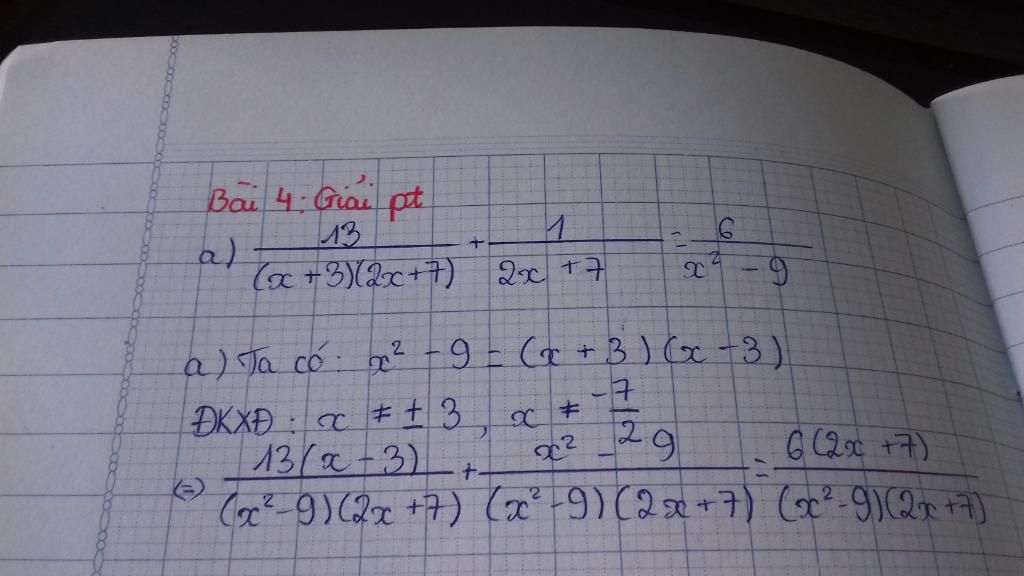 Bài 4: Giải pt
a) 13/((x+3)(2x+7)) + 1/(2x+7) = 6/(x² - 9)
a) Ta có: x² - 9 = (x + 3)(x - 3)
ĐKXĐ: x ≠ ± 3, x ≠ -7/2
(=) 13(x - 3)/((x²-9)(2x+7)) + (x² - 9)/((x²-9)(2x+7)) = 6(2x+7)/((x²-9)(2x+7))